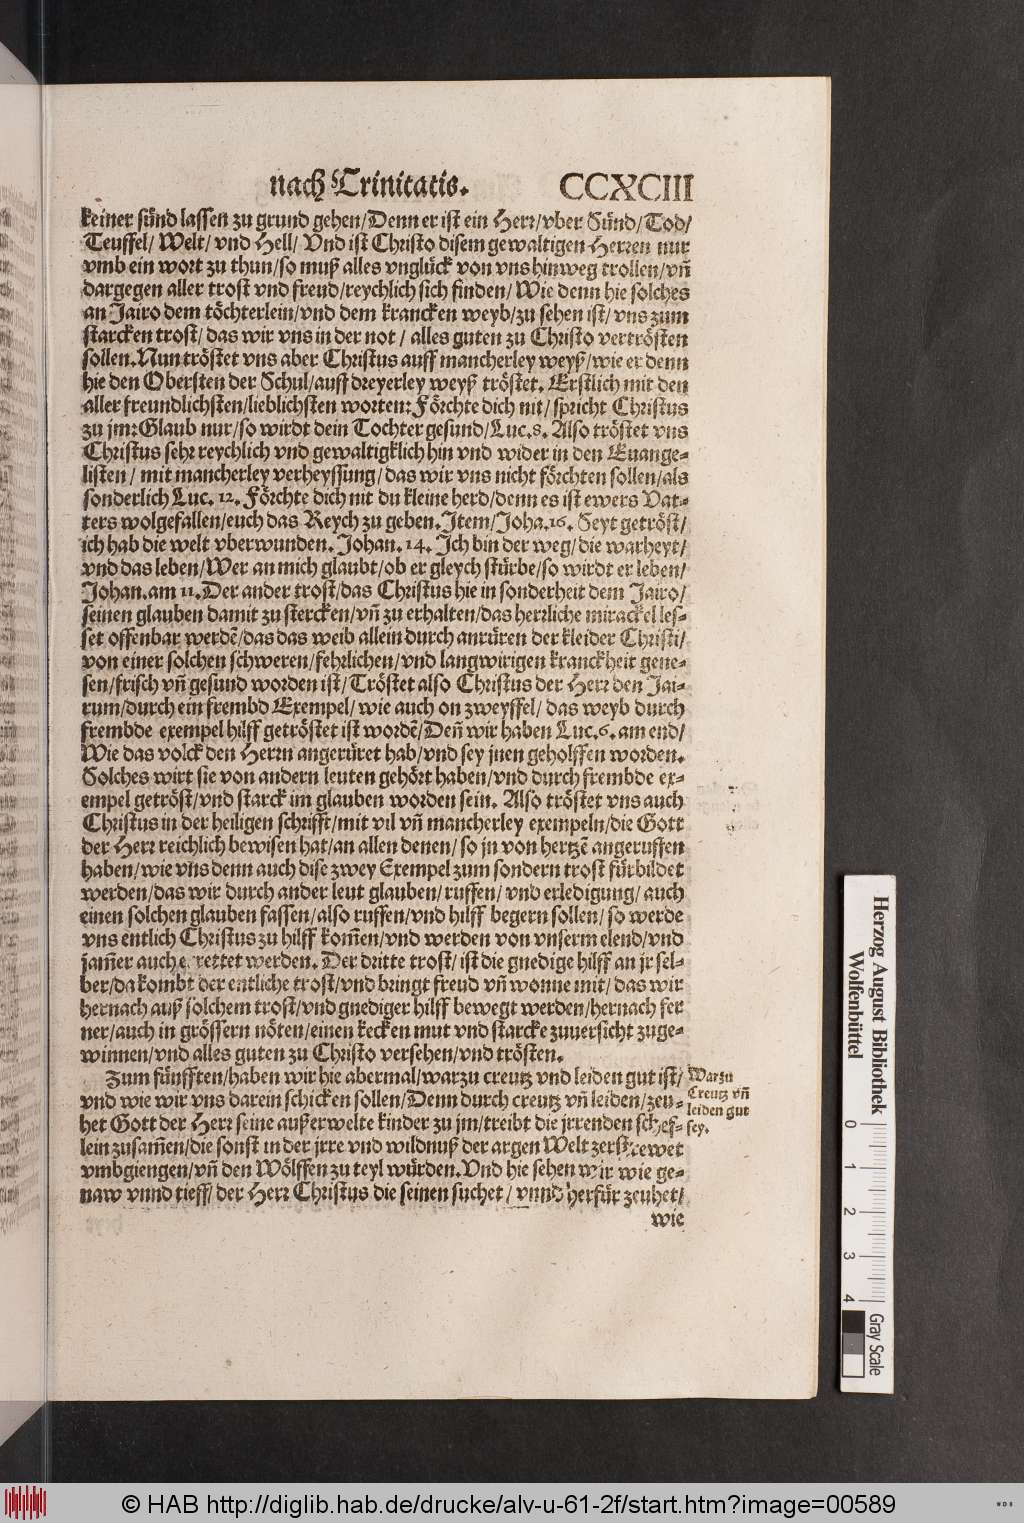 nach Trinitatis. CCXCIII
keiner sünd lassen zu grund gehen/Denn er ist ein Herr/vber Sünd/Tod/
Teuffel/ Welt/ vnd Hell/ Vnd ist Christo disem gewaltigen Herren nur
vmb ein wort zu thun/so muß alles vnglück von vns hinweg trollen/vn̄
dargegen aller trost vnd freud/reychlich sich finden/ Wie denn hie solches
an Jairo dem töchterlein/vnd dem krancken weyb/zu sehen ist/ vns zum
starcken trost/ das wir vns in der not / alles guten zu Christo vertrösten
sollen. Nun tröstet vns aber Christus auff mancherley weyß/wie er denn
hie den Obersten der Schul/auff dreyerley weyß tröstet. Erstlich mit den
aller freundlichsten/lieblichsten worten: Förchte dich nit/ spricht Christus
zu jm: Glaub nur/so wirdt dein Tochter gesund/Luc.8. Also tröstet vns
Christus sehr reychlich vnd gewaltigklich hin vnd wider in den Euange-
listen / mit mancherley verheyssung/das wir vns nicht förchten sollen/als
sonderlich Luc. 12. Förchte dich nit du kleine herd/denn es ist ewers Vat-
ters wolgefallen/euch das Reych zu geben. Item/Joha.16. Seyt getröst/
ich hab die welt vberwunden. Johan. 14. Ich bin der weg/ die warheyt/
vnd das leben/Wer an mich glaubt/ob er gleych stürbe/so wirdt er leben/
Johan.am 11. Der ander trost/das Christus hie in sonderheit dem Jairo/
seinen glauben damit zu stercken/vn̄ zu erhalten/das herrliche mirackel les-
set offenbar werdē/das das weib allein durch anrüren der kleider Christi/
von einer solchen schweren/fehrlichen/vnd langwirigen kranckheit gene-
sen/frisch vn̄ gesund worden ist/ Tröstet also Christus der Herr den Jai-
rum/durch ein frembd Exempel/ wie auch on zweyffel/ das weyb durch
frembde exempel hilff getröstet ist wordē/Den̄ wir haben Luc.6. am end/
Wie das volck den Herrn angerüret hab/vnd sey jnen geholffen worden.
Solches wirt sie von andern leuten gehört haben/vnd durch frembde ex-
empel getröst/vnd starck im glauben worden sein. Also tröstet vns auch
Christus in der heiligen schrifft/mit vil vn̄ mancherley exempeln/die Gott
der Herr reichlich bewisen hat/an allen denen/ so jn von hertzē angeruffen
haben/wie vns denn auch dise zwey Exempel zum sondern trost fürbildet
werden/das wir durch ander leut glauben/ruffen/ vnd erledigung/ auch
einen solchen glauben fassen/also ruffen/vnd hilff begern sollen/ so werde
vns entlich Christus zu hilff kom̄en/vnd werden von vnserm elend/vnd
jam̄er auch errettet werden. Der dritte trost/ ist die gnedige hilff an jr sel-
ber/da kombt der entliche trost/vnd bringt freud vn̄ wonne mit/ das wir
hernach auß solchem trost/vnd gnediger hilff bewegt werden/hernach fer
ner/auch in grössern nöten/einen kecken mut vnd starcke zuuersicht zuge-
winnen/vnd alles guten zu Christo versehen/vnd trösten.
Zum fünfften/haben wir hie abermal/warzu creutz vnd leiden gut ist/
vnd wie wir vns darein schicken sollen/Denn durch creutz vn̄ leiden/zeu-
het Gott der Herr seine außerwelte kinder zu jm/treibt die jrrenden schef-
lein zusam̄en/die sonst in der jrre vnd wildnuß der argen Welt zerstrewet
vmbgiengen/vn̄ den Wölffen zu teyl würden. Vnd hie sehen wir wie ge-
naw vnnd tieff/ der Herr Christus die seinen suchet / vnnd herfür zeuhet/
wie
Warzu
Creutz vn̄
leiden gut
sey.
Herzog August Bibliothek
Wolfenbüttel
0 1 2 3 4
Gray Scale
© HAB http://diglib.hab.de/drucke/alv-u-61-2f/start.htm?image=00589